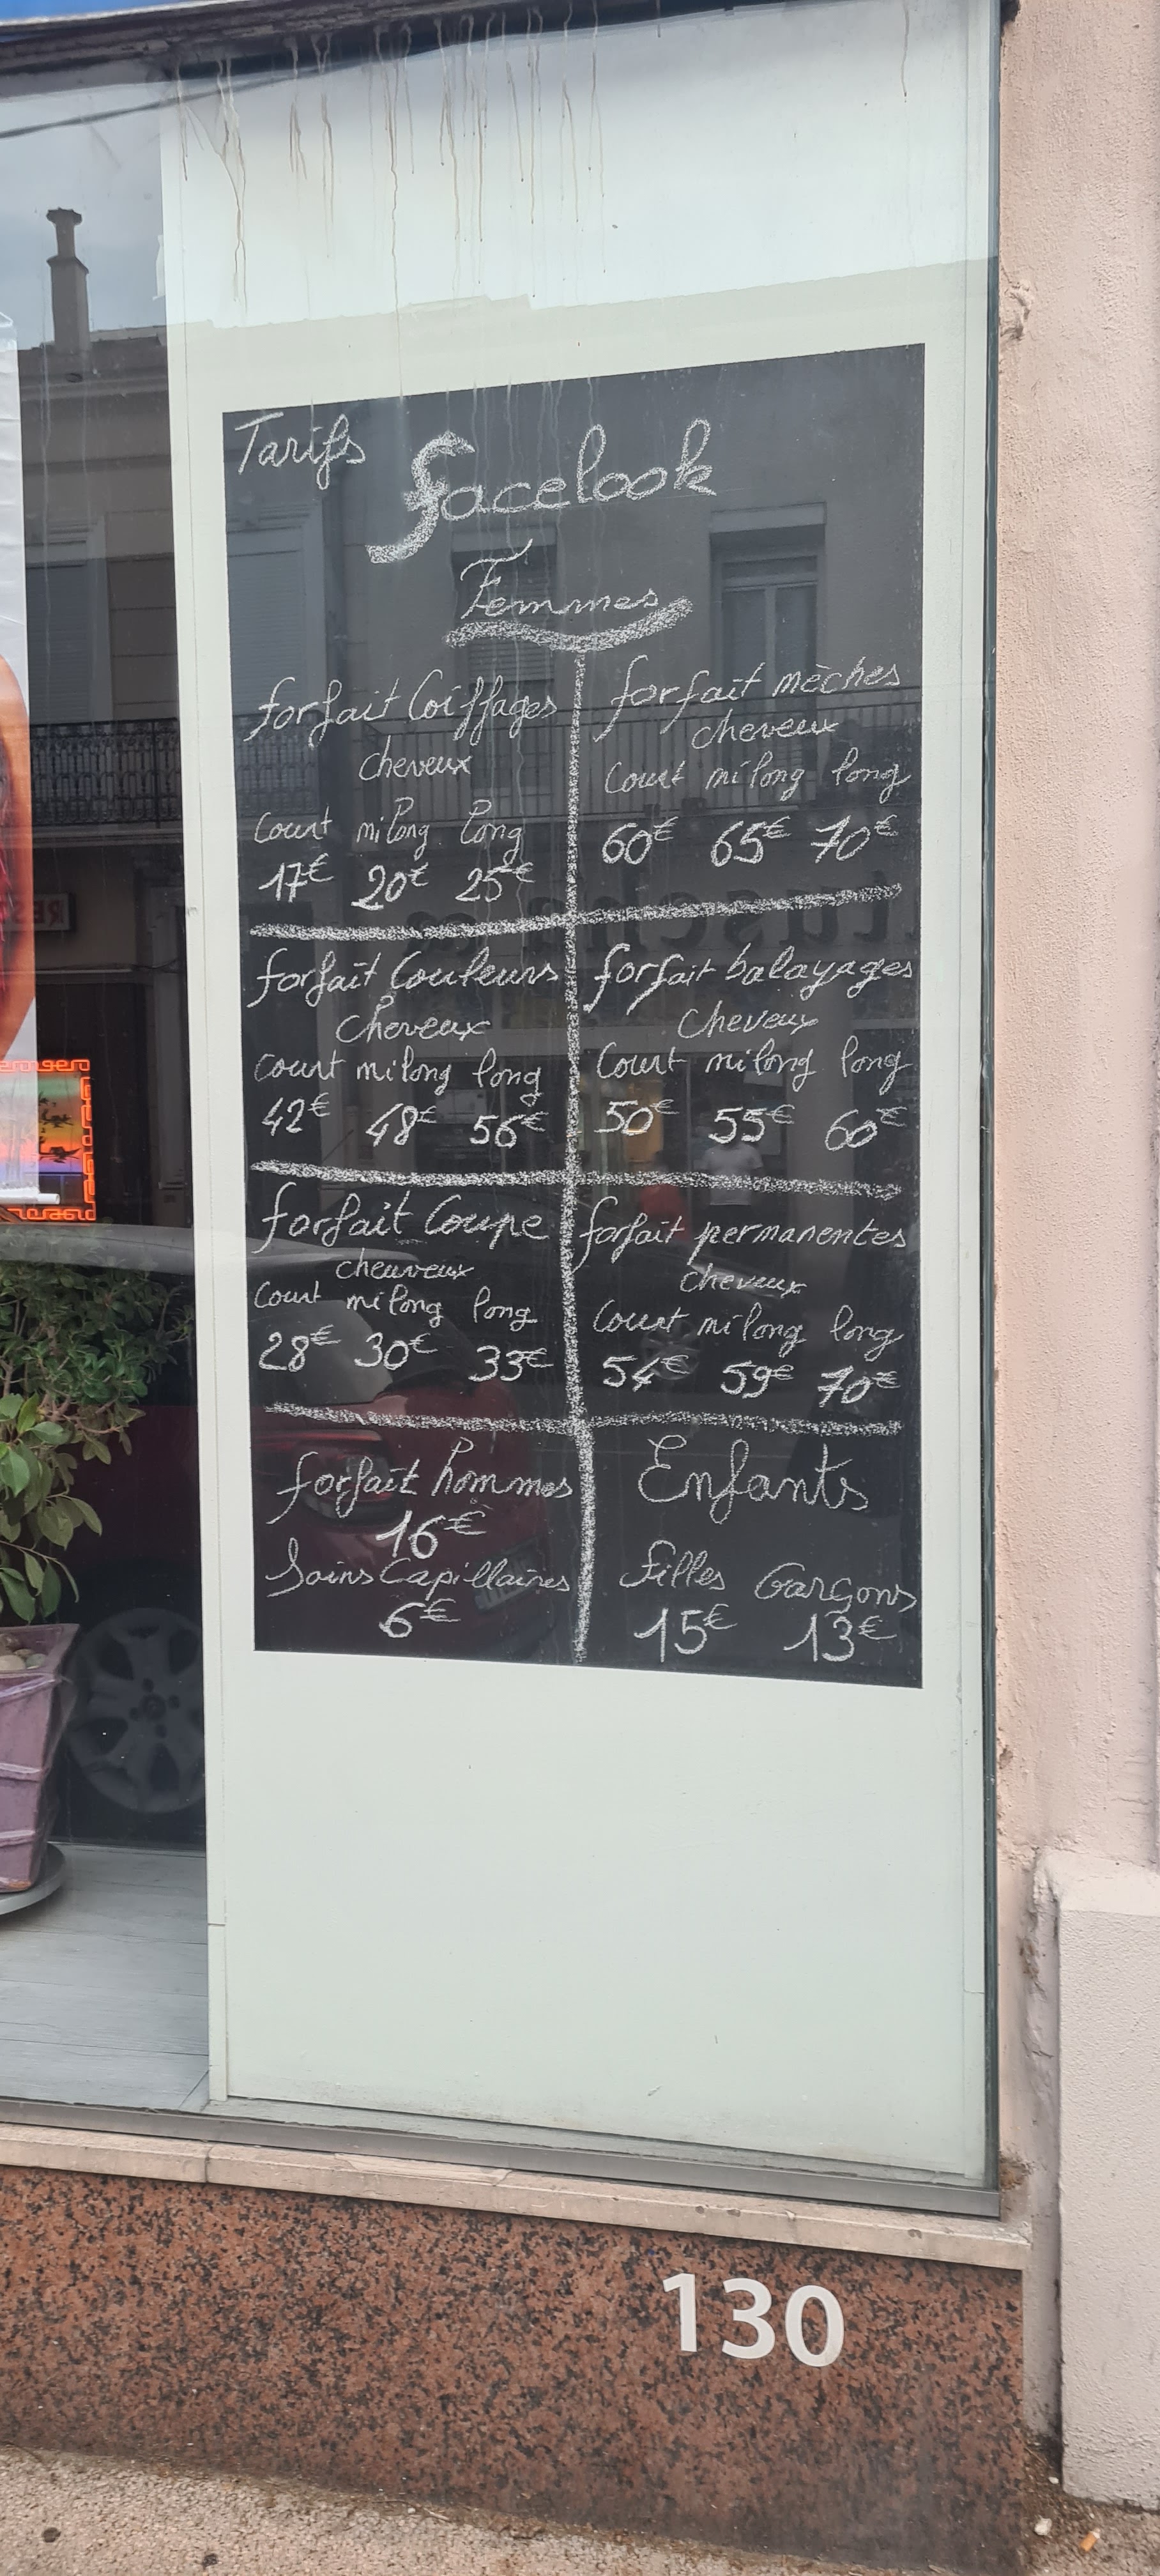 Tarifs
facelook
Femmes
forfait Coiffages
cheveux
Court milong long
17€ 20€ 25€
forfait mèches
cheveux
Court milong long
60€ 65€ 70€
forfait Couleurs
Cheveux
court milong long
42€ 48€ 56€
forfait balayages
Cheveux
Court milong long
50€ 55€ 60€
forfait Coupe
cheuveux
Court milong long
28€ 30€ 33€
forfait permanentes
cheveux
Court milong long
54€ 59€ 70€
forfait hommes
16€
Soins Capillaires
6€
Enfants
filles Garçons
15€ 13€
130